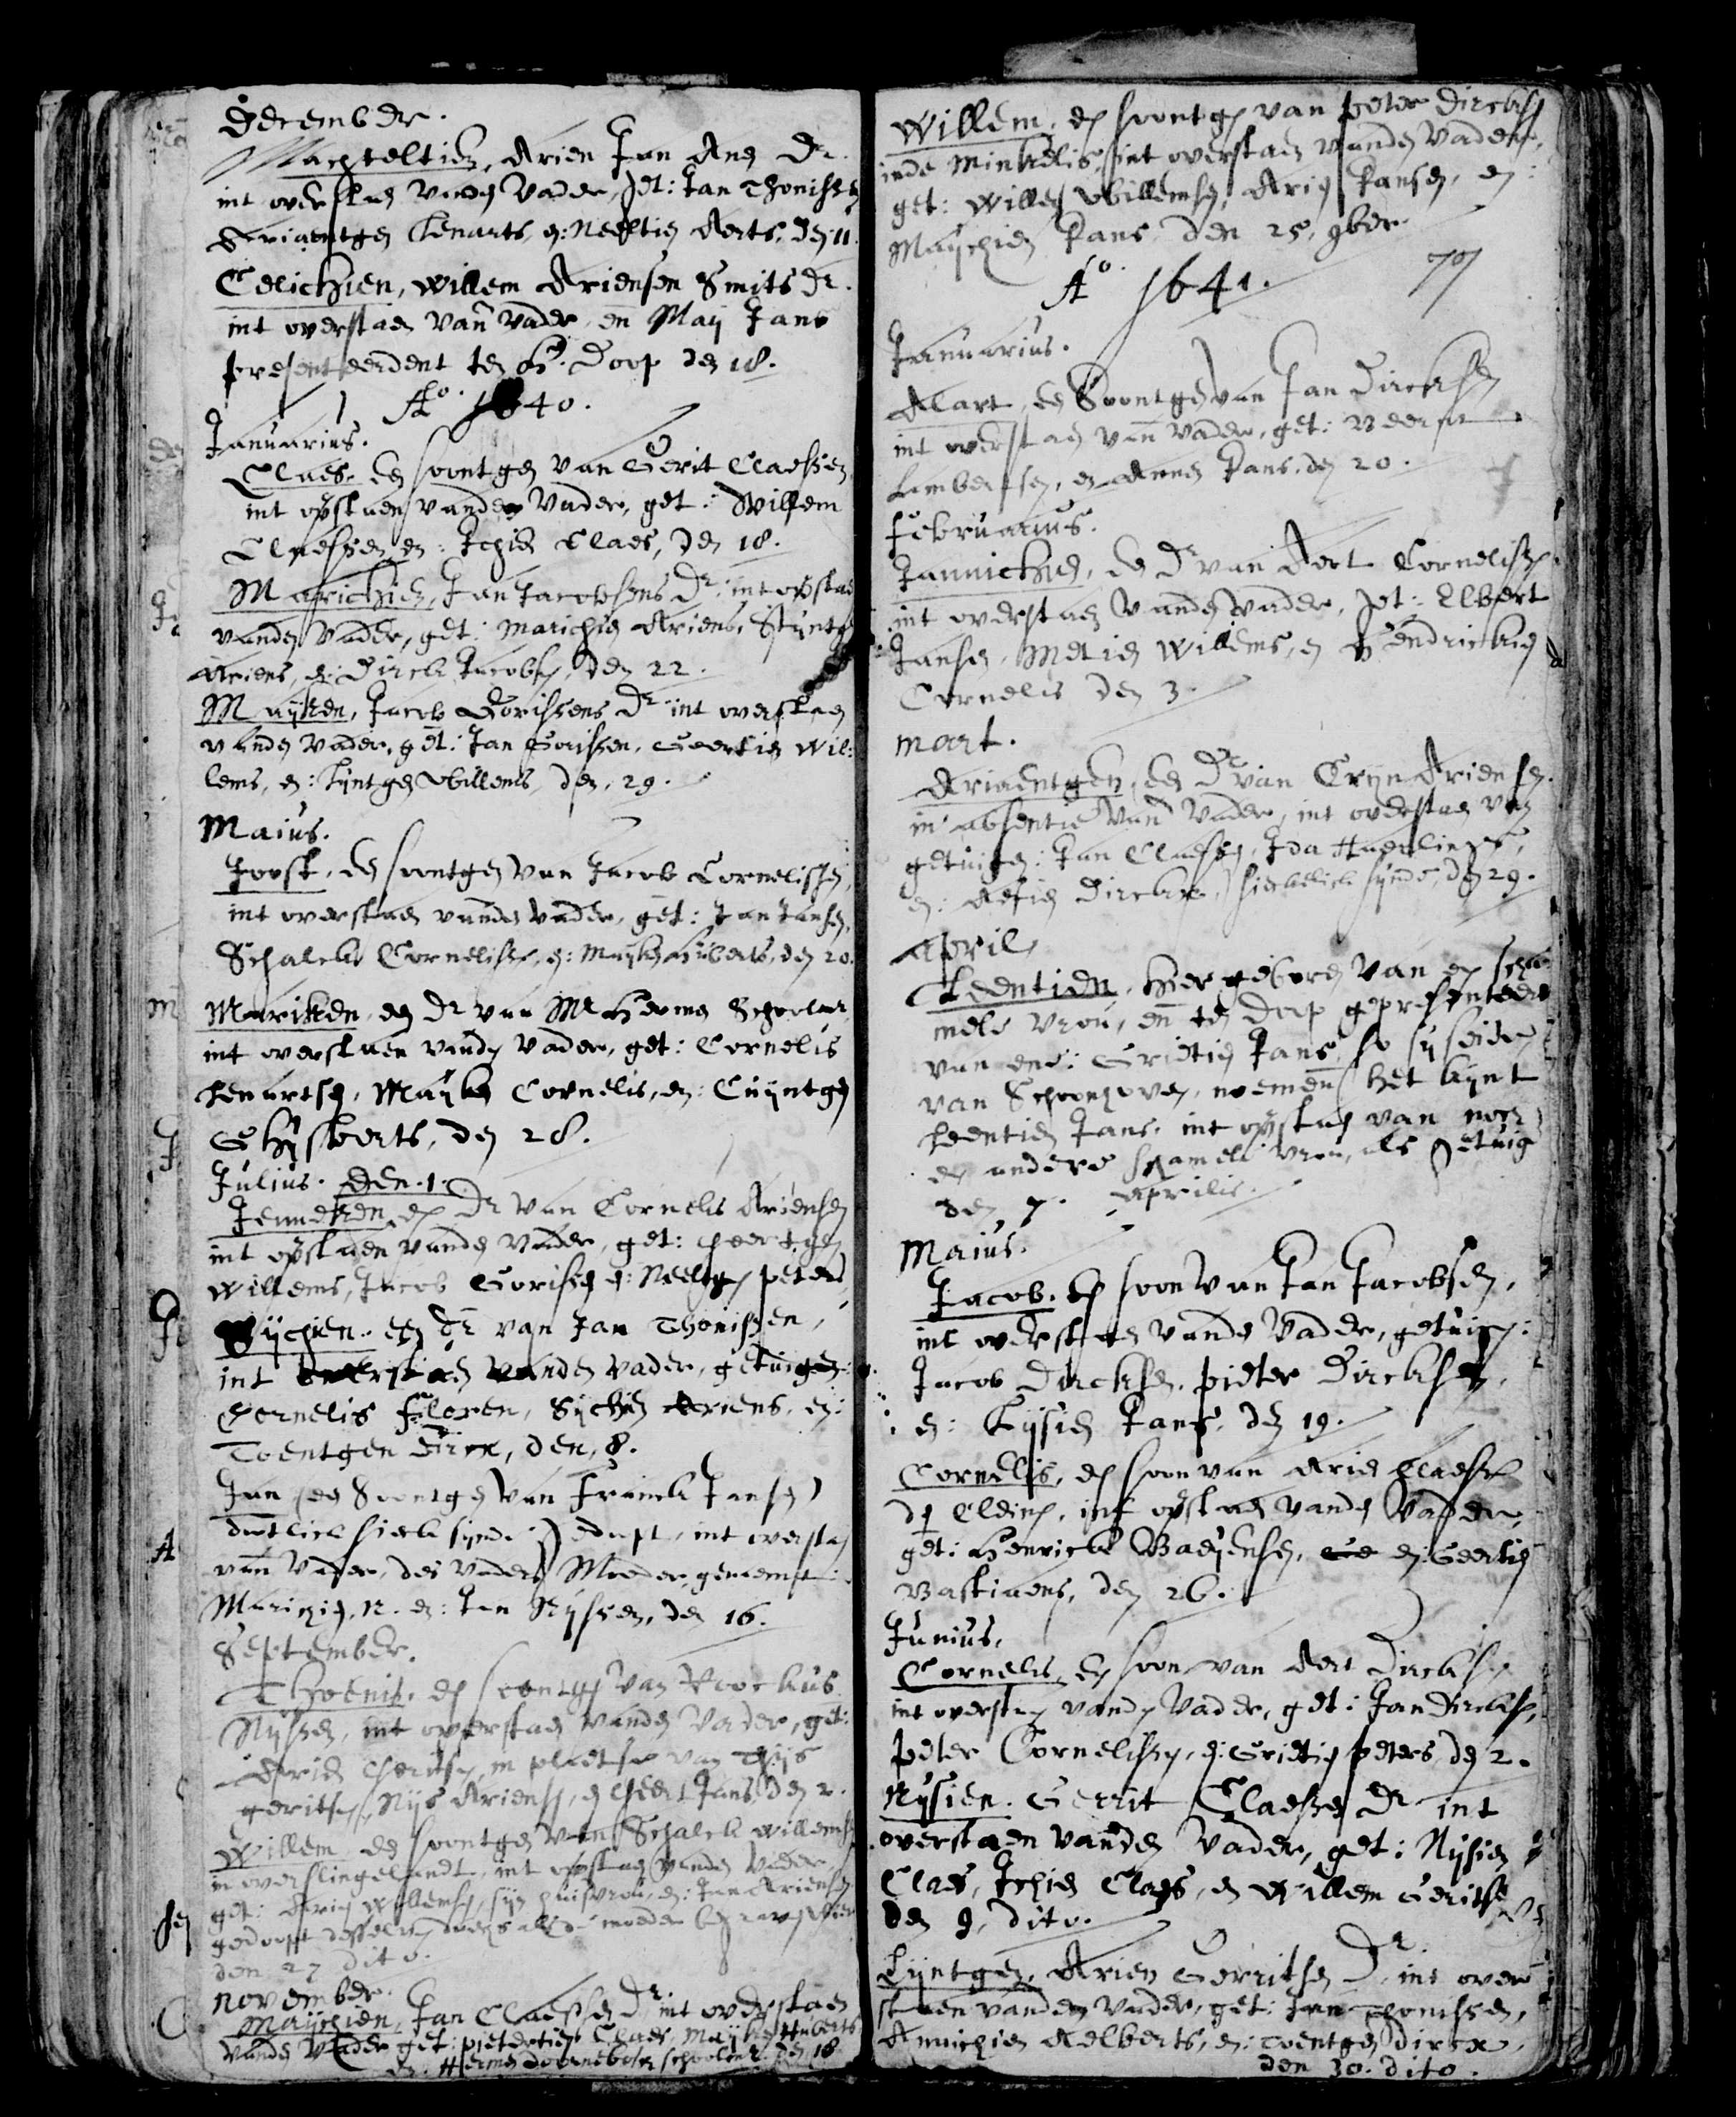 December.
Machteltien, Arien Jan Ans Dr.
int overstaen vanden Vader, get: Jan Thonissen
Ariaentgen Lenarts, en: Neeltien Aerts, den 11.
Celichien, Willem Ariensen Smits Dr.
int overstaen vann vader, en Maij Jans
presenteerdent ten H. Doop den 18.
Ao. 1640.
Januarius.
Claes. een soontgen van Gerit Claessen
int overstaen vanden Vader, get: Willem
Claessen en: Ichien Claes, den 18.
Marichien, Jan Jacobsens Dr. int overstaen
vanden Vader, get: Marichien Ariens, Stijntgen
Ariens, en: Dirck Jacobsen, den 22.
Maijken, Jacob Gorissens Dr int overstaen
vanden Vader, get: Jan Gorissen, Geertien Wil:
lems, en: Lijntgen Willems, den, 29.
Maius.
Joost, een soontgen van Jacob Cornelissen,
int overstaen vanden vader, get: Jan Jansen,
Schalck Cornelissen, en: Mayken Huberts, den 20.
Mariken, een Dr van Mr Hermen Schoolmr.
int overstaen vanden Vader, get: Cornelis
Lenartsen, Mayken Cornelis, en: Cuijntgen
Ghijsberts, den 28.
Julius. Den. 1.
Jenneken een Dr van Cornelis Ariensen
int overstaen vanden Vader, get: Geertgen
Willems, Jacob Gorissen en: Neeltgen Peters
Sijchien. een Dr van Jan Thonissen,
int overstaen vanden vader, getuigen:
Cornelis Floren, Sijchien Ariens, en:
Toentgen Dircx, den, 8.
Jan een Soontgen van Franck Jansen
dootlick sieck synde gedoopt, int overstaen
vann Vader, des Vaders Moeder, genaemt
Marichien, N. en: Jan Nijssen, den 16.
September.
Thoenis. een soontgen van Roockus
Nijssen, int overstaen vanden Vader, get:
Arien Geritsen, in plaetse van Thijs
geritsen, Nijs Ariensen, en Geert Jans, den 2.
Willem een soontgen van Schalck Willemsen
in overslingelandt, int overstaen vanden Vader
get: Arien Willemsen, sijn huisvrou, en: Jan Ariensen
den 27 dito.
November.
Maijchien, Jan Claessen Dr int overstaen
vanden Vader get: pietertien Claes, Mayken Huberts
en: Hermen Doornebosch schoolmr. den 18.
Willem, een soontgen van Peter Dircksen
inde Minkelis, int overstaen vanden Vader,
get: Willem Willemsen, Arien Jansen, en:
Maijchien Jans den 25, 9ber
Ao. 1641.
77
Januarius.
Alart, een Soontgen van Jan Dircksen
int overstaen vann Vader, get:
Lambertsen, en Annen Jans, den 20.
Februarius.
Jannichien, een Dr van Aert Cornelissen
int overstaen vanden vader, get: Elbert
Jansen, Metien Willems, en Hendrickien
Cornelis den 3.
Mart.
Ariaentgen, een Dr van Crijn Ariensen.
in absentie vann Vader, int overstaen van
getuigen: Jan Claessen, Ida Haerlincx,
en: Aefien Dircks, sieckelick synde, den 29.
April
Leentien, hier geboren van een scha
mele vrou, en ten doop gepresenteert
van ene: Grietien Jans, so sy seiden
van Schoonhoven, noemende het kynt
Leentien Jans. int overstaen van noch
een andere schamele vrou, als getuig
den 7. Aprilis.
Maius.
Jacob. een soon van Jan Jacobsen,
int overstaen vanden Vader, getuigen:
Jacob Dircksen, Pieter Dircksen,
en: Lijsien Jans, den 19.
Cornelis, een soon van Arien Claessen
de cleine, int overstaen vanden Vader,
get: Henrick Baeyensen, en: Geertien
Bastiaens, den 26.
Junius.
Cornelis, een soon van Aert Dircksen
int overstaen vanden Vader, get: Jan Dircksen,
Peter Cornelissen, en: Grietien Peters, den 2.
Nijsien. Gerrit Claessen Dr int
overstaen vanden Vader, get: Nijsien
Claes, Ichien Claes, en Willem Geritsen
den 9, dito.
Lijntgen, Arien Gerritsen Dr. int over
staen vanden Vader, get: Jan Thonissen,
Annichien Aelberts, en: Toentgen Dircx,
den 30. dito.